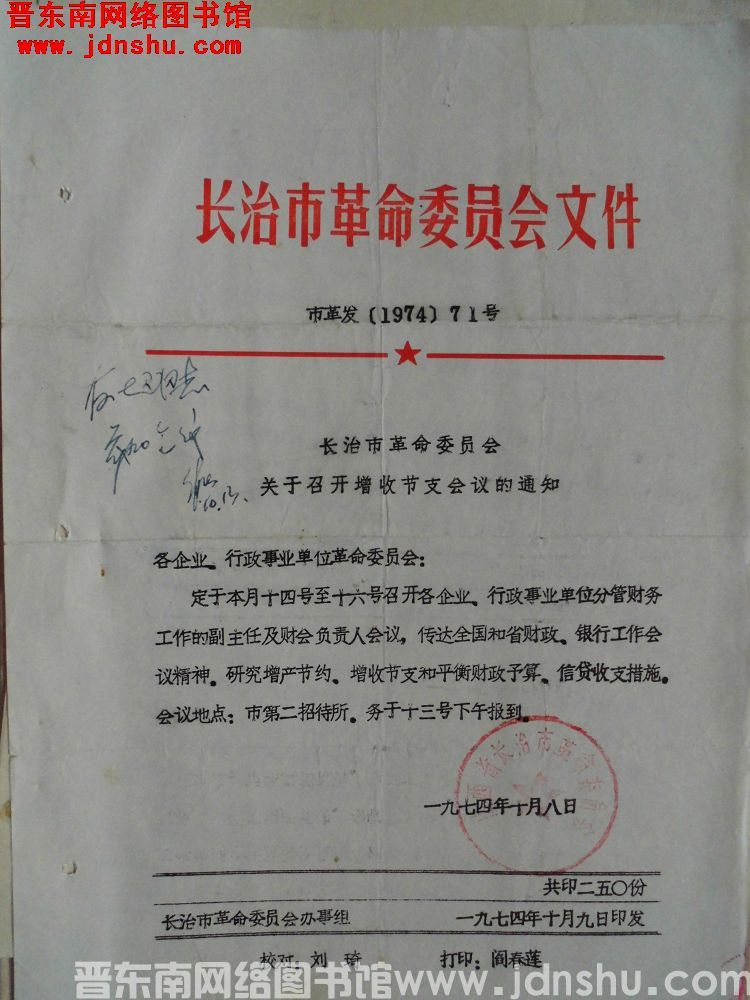 晋东南网络图书馆
www.jdnshu.com
长治市革命委员会文件
市革发〔1974〕71号
长治市革命委员会
关于召开增收节支会议的通知
各企业、行政事业单位革命委员会：
定于本月十四号至十六号召开各企业、行政事业单位分管财务
工作的副主任及财会负责人会议，传达全国和省财政、银行工作会
议精神。研究增产节约、增收节支和平衡财政予算、信贷收支措施。
会议地点：市第二招待所。务于十三号下午报到。
山西省长治市革命委员会
一九七四年十月八日
共印二五〇份
长治市革命委员会办事组 一九七四年十月九日印发
校对：刘琦 打印：阎春莲
晋东南网络图书馆www.jdnshu.com